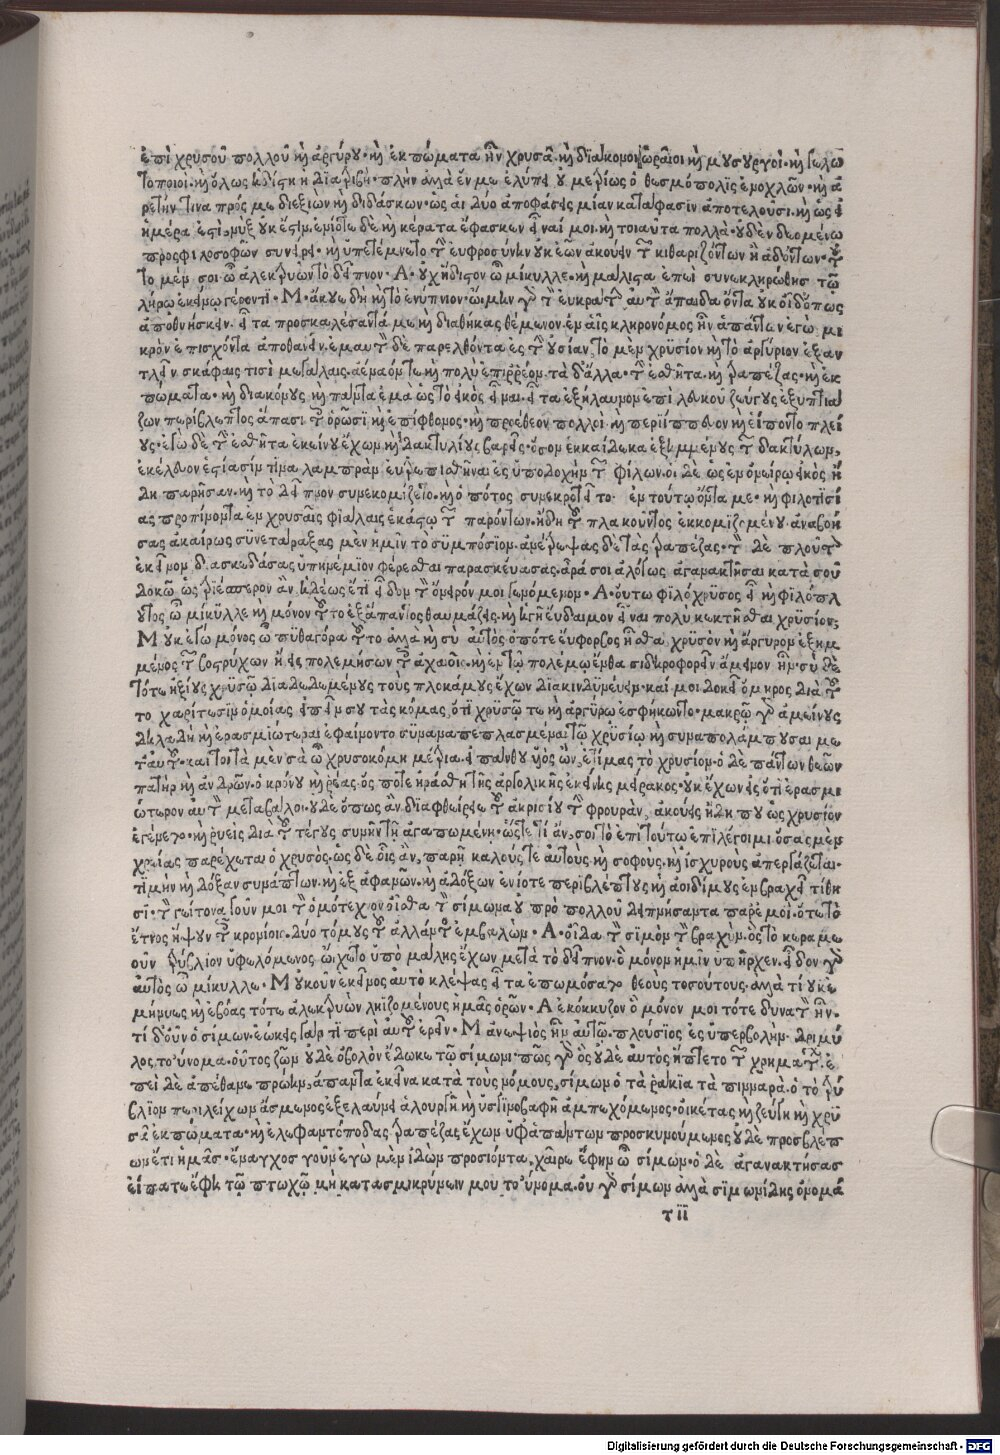 ἐπὶ χρυσοῦ πολλοῦ καὶ ἀργύρου· καὶ ἐκπώματα ἦν χρυσᾶ· καὶ διάκονοι ὡραῖοι καὶ μουσουργοὶ· καὶ γελω
τοποιοὶ· καὶ ὅλως ἡδίστη ἡ διατριβή· πλὴν ἀλλὰ ἕν με ἐλύπει οὐ μετρίως ὁ θεσμόπολις ἐνοχλῶν· καὶ ἀ
ρετήν τινα πρός με διεξιὼν καὶ διδάσκων· ὡς αἱ δύο ἀποφάσεις μίαν κατάφασιν ἀποτελοῦσι· καὶ ὡς εἰ
ἡμέρα ἐστὶ, νὺξ οὐκ ἔστιν. ἐνίοτε δὲ καὶ κέρατα ἔφασκεν εἶναί μοι. καὶ τοιαῦτα πολλὰ· οὐδὲν δεομένω
προσφιλοσοφῶν συνεῖρε· καὶ ὑπετέμνετο τὴν εὐφροσύνην οὐκ ἐῶν ἀκούειν τῶν κιθαριζόντων ἢ ἀδόντων· τοῦ
το μέν σοι ὦ ἀλεκτρυὼν τὸ δεῖπνον· Α· οὐχ ἥδιστον ὦ μίκυλλε· καὶ μάλιστα ἐπεὶ συνεκληρώθης τῶ
λήρω ἐκείνω γέροντι· Μ· ἄκουε δὴ καὶ τὸ ἐνύπνιον· ὤμην γὰρ τὸν εὐκράτην αὐτὸν ἄπαιδα ὄντα οὐκ οἶδ' ὅπως
ἀποθνήσκειν. εἶτα προσκαλέσαντά με καὶ διαθήκας θέμενον. ἐν αἷς κληρονόμος ἦν ἁπάντων ἐγὼ. μι
κρὸν ἐπισχόντα ἀποθανεῖν. ἐμαυτὸν δὲ παρελθόντα ἐς τὴν οὐσίαν. τὸ μὲν χρυσίον καὶ τὸ ἀργύριον ἐξαν
τλεῖν σκάφαις τισὶ μεγάλαις. ἀέναόν τε καὶ πολὺ ἐπιρρέον. τὰ δ' ἄλλα· τὴν ἐσθῆτα. καὶ τραπέζας· καὶ ἐκ
πώματα· καὶ διακόνους καὶ πάντα ἐμὰ ὡς τὸ εἰκὸς εἶναι· εἶτα ἐξήλαυνον ἐπὶ λευκοῦ ζεύγους ἐξυπτιά
ζων περίβλεπτος ἅπασι τοῖς ὁρῶσι καὶ ἐπίφθονος· καὶ προέθεον πολλοὶ. καὶ περιίππευον καὶ εἵποντο πλεί
ους· ἐγὼ δὲ τὴν ἐσθῆτα ἐκείνου ἔχων καὶ δακτυλίους βαρεῖς· ὅσον ἑκκαίδεκα ἐξημμένους τῶν δακτύλων,
ἐκέλευον ἑστίασίν τινα λαμπρὰν εὐτρεπισθῆναι ἐς ὑποδοχὴν τῶν φίλων. οἱ δὲ ὡς ἐν ὀνείρω εἰκὸς ἤ
δη παρῆσαν. καὶ τὸ δεῖπνον συνεκομίζετο. καὶ ὁ πότος συνεκροτεῖτο· ἐν τούτω ὄντα με· καὶ φιλοτησί
ας προπίνοντα ἐν χρυσαῖς φιάλαις ἑκάστω τῶν παρόντων. ἤδη τοῦ πλακοῦντος ἐκκομιζομένου. ἀναβοή
σας ἀκαίρως συνετάραξας μὲν ἡμῖν τὸ συμπόσιον. ἀνέτρεψας δὲ τὰς τραπέζας· τὸν δὲ πλοῦτον
ἐκεῖνον διασκεδάσας ὑπηνέμιον φέρεσθαι παρασκεύασας. ἆρά σοι ἀλόγως ἀγανακτῆσαι κατὰ σοῦ
δοκῶ, ὡς τριέσπερον ἂν ἡδέως ἔτι εἶδον τὸν ὄνειρόν μοι γενόμενον· Α· οὕτω φιλόχρυσος εἶ καὶ φιλόπλ
ουτος ὦ μίκυλλε καὶ μόνον τοῦτο ἐξ ἅπαντος θαυμάζεις. καὶ ἡγῆ εὔδαιμον εἶναι πολὺ κεκτῆσθαι χρυσίον;
Μ οὐκ ἐγὼ μόνος ὦ πυθαγόρα τοῦτο ἀλλὰ καὶ σὺ αὐτὸς ὁπότε εὔφορβος ἦσθα, χρυσὸν καὶ ἄργυρον ἐξημ
μένος τῶν βοστρύχων ἤεις πολεμήσων τοῖς ἀχαιοῖς· καὶ ἐν τῶ πολέμω ἔνθα σιδηροφορεῖν ἄμεινον ἦν· σὺ δὲ
τότε ἠξίους χρυσῶ διαδεδεμένους τοὺς πλοκάμους ἔχων διακινδυνεύειν· καί μοι δοκεῖ ὅμηρος διὰ τοῦ
το χαρίτεσσιν ὁμοίας εἰπεῖν σου τὰς κόμας, ὅτι χρυσῶ τε καὶ ἀργύρω ἐσφήκωντο· μακρῶ γὰρ ἀμείνους
δηλαδὴ καὶ ἐρασμιώτεραι ἐφαίνοντο συναναπεπλεγμέναι τῶ χρυσίω καὶ συναπολάμπουσαι με
τ' αὐτοῦ· καίτοι τὰ μὲν σὰ ὦ χρυσοκόμη μέτρια. εἰ πάνθου υἱὸς ὢν, ἐτίμας τὸ χρυσίον· ὁ δὲ πάντων θεῶν
πατὴρ καὶ ἀνδρῶν. ὁ κρόνου καὶ ῥέας. ὅς ποτε ἠράσθη τῆς ἀργολικῆς ἐκείνης μείρακος· οὐκ ἔχων εἰς ὅτι ἐρασμι
ώτερον αὐτὸν μεταβάλοι. οὐδὲ ὅπως ἂν διαφθείρειε τοῦ ἀκρισίου τὴν φρουρὰν, ἀκούεις ἤδη που ὡς χρυσίον
ἐγένετο· καὶ ῥυεὶς διὰ τοῦ τέγους συνῆν τῆ ἀγαπωμένη· ὥστε τί ἄν, σοι τὸ ἐπὶ τούτω ἐπιλέγοιμι ὅσας μὲν
χρείας παρέχεται ὁ χρυσὸς· ὡς δὲ οἷς ἂν, παρῆ καλούς τε αὐτοὺς. καὶ σοφοὺς. καὶ ἰσχυροὺς ἀπεργάζεται·
τιμὴν καὶ δόξαν συνάπτων. καὶ ἐξ ἀφανῶν. καὶ ἀδόξων ἐνίοτε περιβλέπτους καὶ ἀοιδίμους ἐν βραχεῖ τίθη
σι· τὸν γείτονα γοῦν μοι τὸν ὁμότεχνον οἶσθα τὸν σίμωνα οὐ πρὸ πολλοῦ δειπνήσαντα παρ' ἐμοί. ὅτε τὸ
ἔτνος ἥψουν τοῖς κρονίοις. δύο τόμους τοῦ ἀλλᾶντος ἐμβαλὼν· Α· οἶδα τὸν σιμὸν τὸν βραχὺν. ὃς τὸ κεραμε
οῦν τρύβλιον ὑφελόμενος ὤχετο ὑπὸ μάλης ἔχων μετὰ τὸ δεῖπνον· ὃ μόνον ἡμῖν ὑπῆρχεν. εἶδον γὰρ
αὐτὸς ὦ μίκυλλε· Μ οὐκοῦν ἐκεῖνος αὐτὸ κλέψας εἶτα ἐπωμόσατο θεοὺς τοσούτους. ἀλλὰ τί οὐκ ἐ
μήνυες καὶ ἐβόας τότε ἀλεκτρυὼν ληϊζομένους ἡμᾶς ὁρῶν· Α ἐκόκκυζον ὃ μόνον μοι τότε δυνατὸν ἦν·
τί δ' οὖν ὁ σίμων. ἐώκεις γάρ τι περὶ αὐτοῦ ἐρεῖν· Μ ἀνεψιὸς ἦν αὐτῶ. πλούσιος ἐς ὑπερβολὴν. δριμύ
λος, τοὔνομα. οὗτος ζῶν οὐδὲ ὀβολὸν ἔδωκε τῶ σίμωνι· πῶς γὰρ ὃς οὐδὲ αὐτὸς ἥπτετο τῶν χρημάτων. ἐ
πεὶ δὲ ἀπέθανε πρώην, ἅπαντα ἐκεῖνα κατὰ τοὺς νόμους, σίμων ὁ τὰ ῥάκια τὰ πιναρὰ. ὁ τὸ τρύ
βλιον περιλείχων ἄσμενος ἐξελαύνει ἁλουργῆ καὶ ὑσγινοβαφῆ ἀμπεχόμενος· οἰκέτας καὶ ζεύγη καὶ χρυ
σᾶ ἐκπώματα· καὶ ἐλεφαντόποδας τραπέζας ἔχων ὑφ' ἁπάντων προσκυνούμενος οὐδὲ προσβλέπ
ων ἔτι ἡμᾶς· ἔναγχος γοῦν ἐγὼ μὲν ἰδὼν προσιόντα, χαῖρε ἔφην ὦ σίμων· ὁ δὲ ἀγανακτήσας
εἴπατε ἔφη τῶ πτωχῶ μὴ κατασμικρύνειν μου τοὔνομα. οὐ γὰρ σίμων ἀλλὰ σιμωνίδης ὀνομά
τ ϊϊ
Digitalisierung gefördert durch die Deutsche Forschungsgemeinschaft - DFG